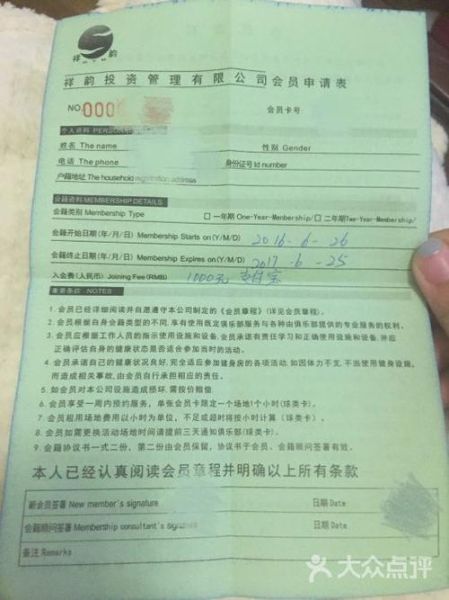 祥 韵
祥韵投资管理有限公司会员申请表
NO.000
会员卡号
个人资料 PERSONAL
姓名 The name 性别 Gender
电话 The phone 身份证号 Id number
户籍地址 The household registration address
会籍资料 MEMBERSHIP DETAILS
会籍类别 Membership Type 口一年期 One-Year-Membership/ 口二年期 Two-Year-Membership/
会籍开始日期(年/月/日) Membership Starts on (Y/M/D) 2016-6-26
会籍终止日期(年/月/日) Membership Expires on (Y/M/D) 2017-6-25
入会费(人民币) Joining Fee(RMB) 1000元 支付宝
重要条款：NOTES
1、会员已经详细阅读并自愿遵守本公司制定的《会员章程》(详见会员章程)。
2、会员根据自身会籍类型的不同，享有使用既定俱乐部服务与各种由俱乐部提供的专业服务的权利。
3、会员应根据工作人员的指示使用设施和设备，会员承诺有责任学习和正确使用设施和设备，并应
正确评估自身的健康状态是否适合参加当时的活动。
4、会员承诺自己的健康状况良好，完全适应参加健身房的各项活动，如因体力不支、不当使用健身设施，
而造成相关事故，由会员自行承担相应的责任。
5、如会员对本公司设施造成损坏，需按价赔偿。
6、会员享受一周内预约服务，单张会员卡限定一个场地1个小时(球类卡)。
7、会员租用场地费用以小时为单位，不足或超时将按小时计算（球类卡）。
8、会员如需更换活动场地时间请提前三天通知俱乐部(球类卡)。
9、会籍协议书一式二份，第二份由会员保留，协议书于会员、会籍顾问签署有效。
本人已经认真阅读会员章程并明确以上所有条款
新会员签署 New member's signature 日期 Date
会籍顾问签署 Membership consultant's signature 日期 Date
备注 Remarks
大众点评